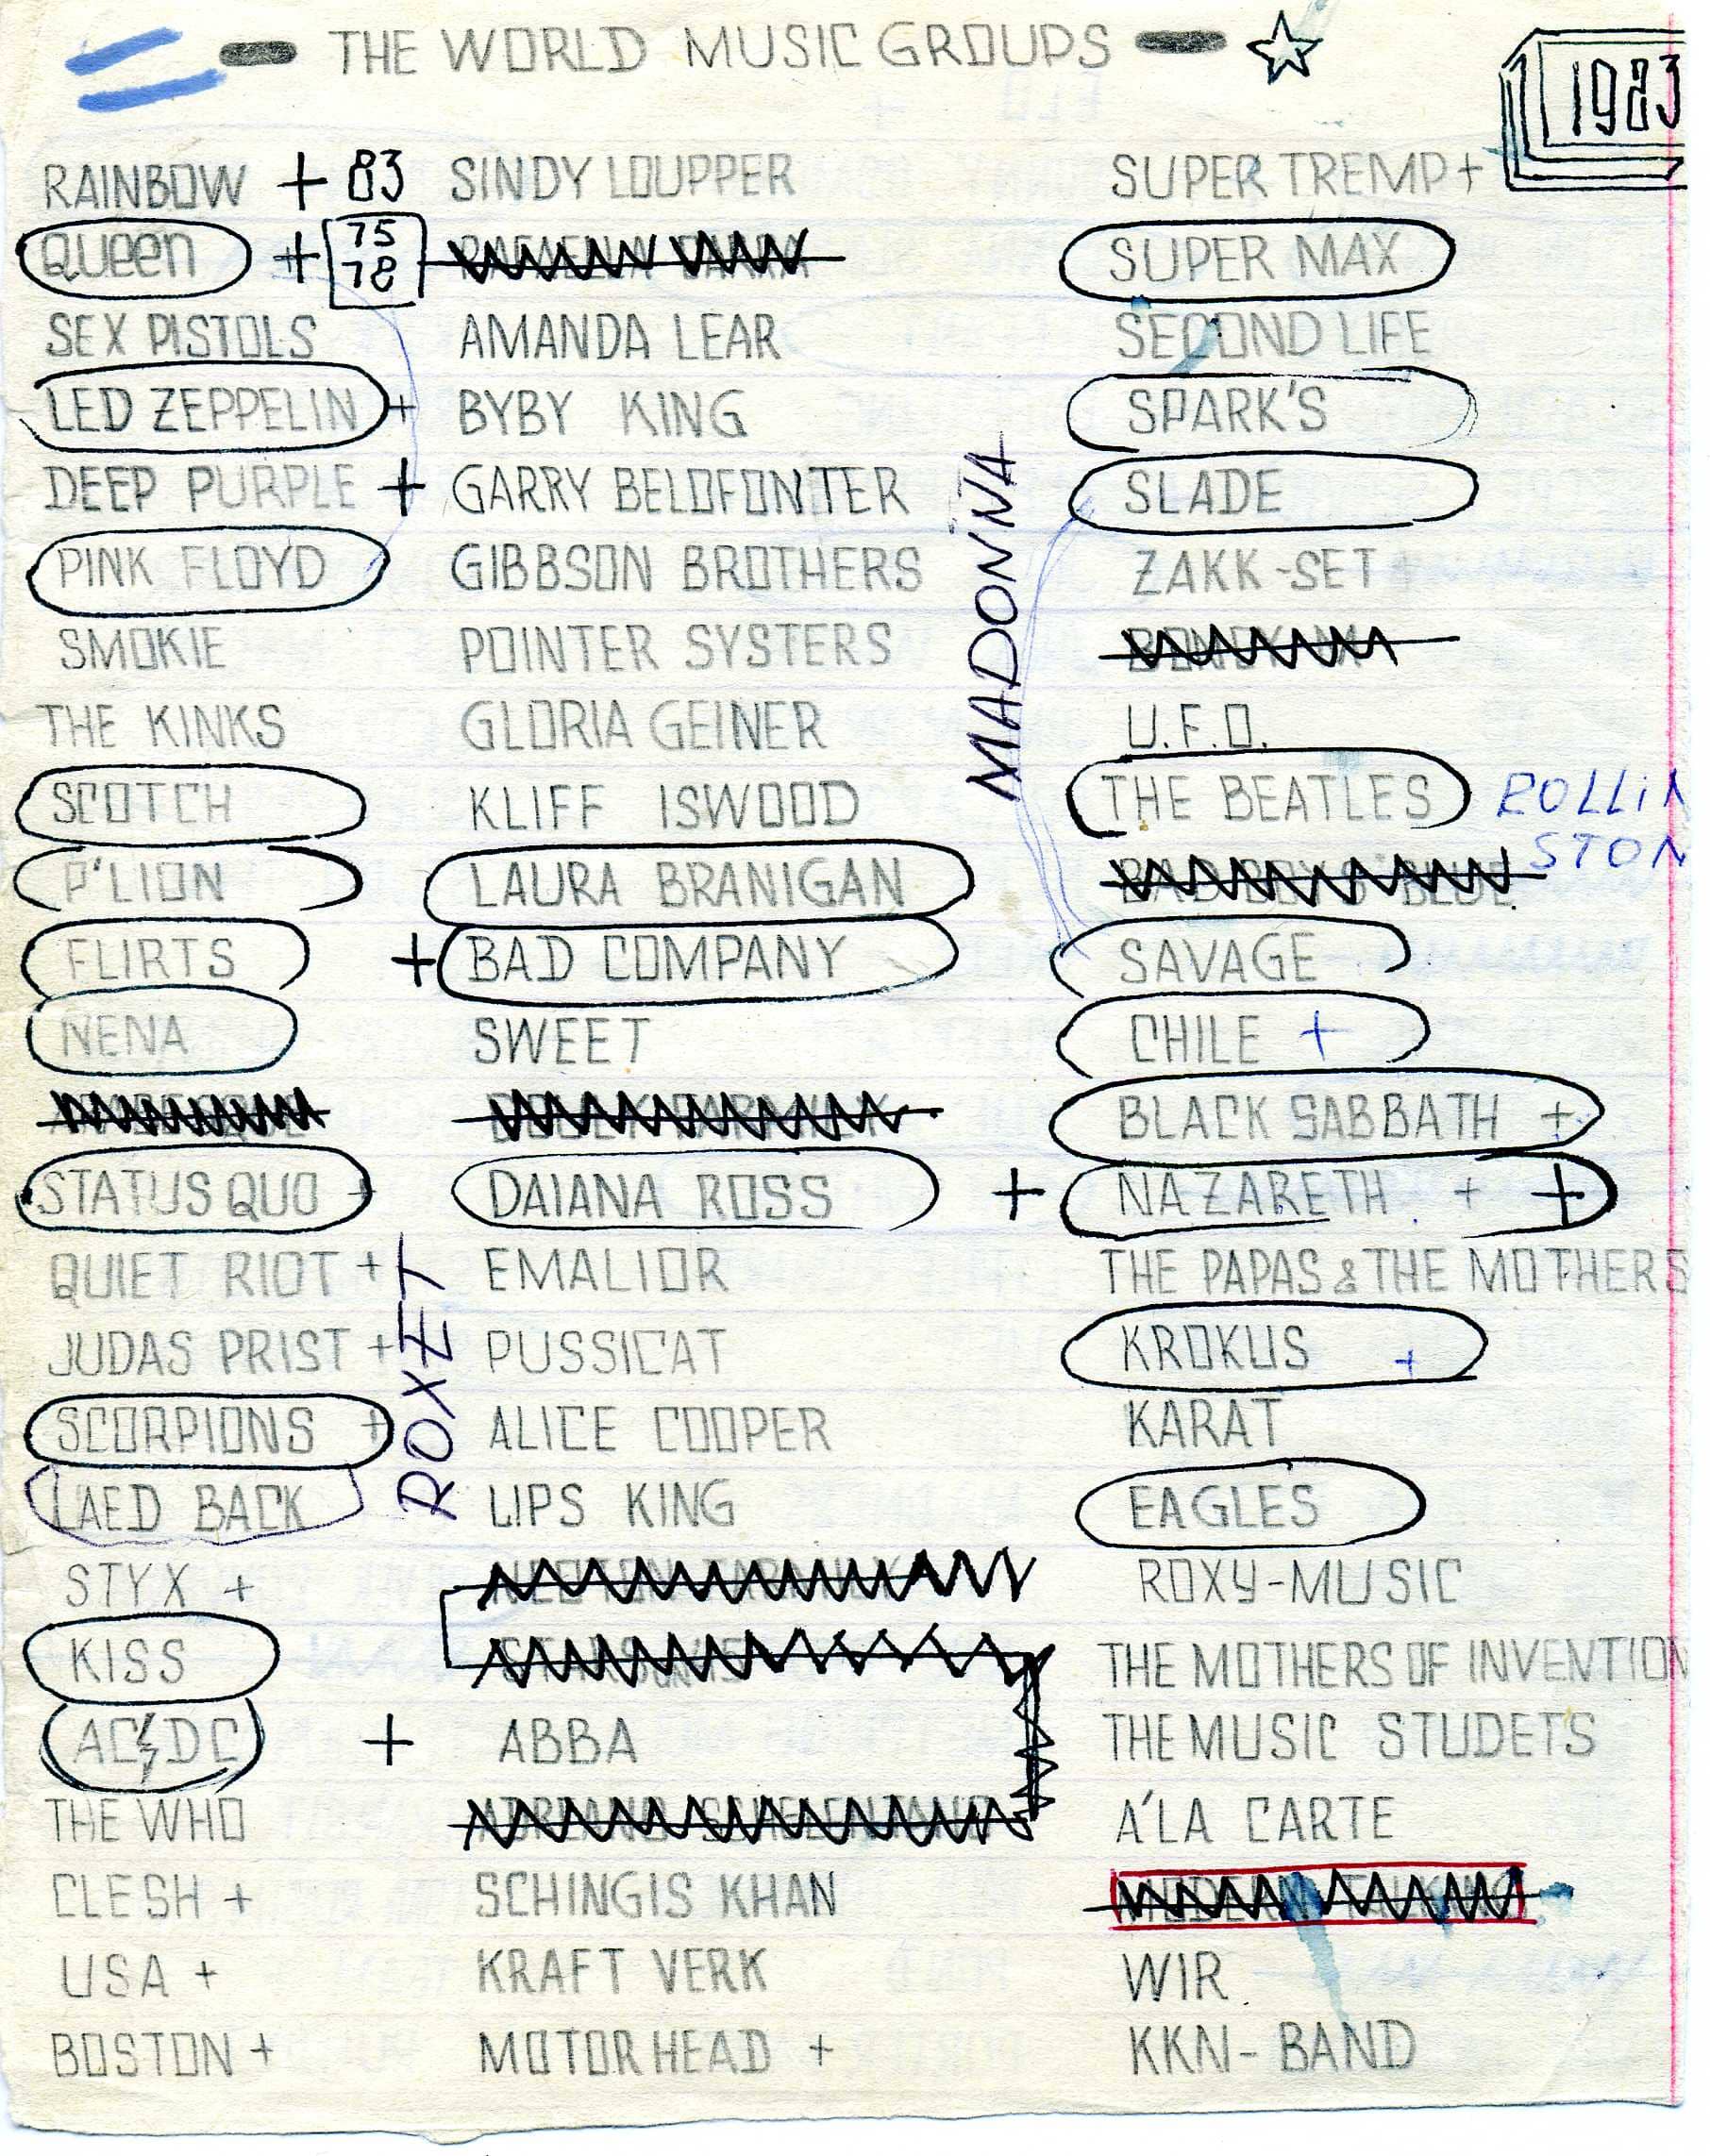 THE WORLD MUSIC GROUPS
1983
RAINBOW + 83
Queen + 75 78
SEX PISTOLS
LED ZEPPELIN +
DEEP PURPLE +
PINK FLOYD
SMOKIE
THE KINKS
SCOTCH
P'LION
FLIRTS
NENA
STATUS QUO +
QUIET RIOT +
JUDAS PRIST +
SCORPIONS +
LAED BACK
STYX +
KISS
AC⚡DC
THE WHO
CLESH +
USA +
BOSTON +
ROXET
SINDY LOUPPER
AMANDA LEAR
BYBY KING
GARRY BELOFONTER
GIBBSON BROTHERS
POINTER SYSTERS
GLORIA GEINER
KLIFF ISWOOD
LAURA BRANIGAN
+ BAD COMPANY
SWEET
DAIANA ROSS
EMALIOR
PUSSICAT
ALICE COOPER
LIPS KING
+ ABBA
SCHINGIS KHAN
KRAFT VERK
MOTORHEAD +
MADONNA
SUPER TREMP +
SUPER MAX
SECOND LIFE
SPARK'S
SLADE
ZAKK-SET
U.F.O.
THE BEATLES
ROLLIN
STON
BAD BOYS BLUE
SAVAGE
CHILE +
BLACK SABBATH +
+ NAZARETH + +
THE PAPAS & THE MOTHERS
KROKUS +
KARAT
EAGLES
ROXY-MUSIC
THE MOTHERS OF INVENTION
THE MUSIC STUDETS
A'LA CARTE
WIR
KKN-BAND